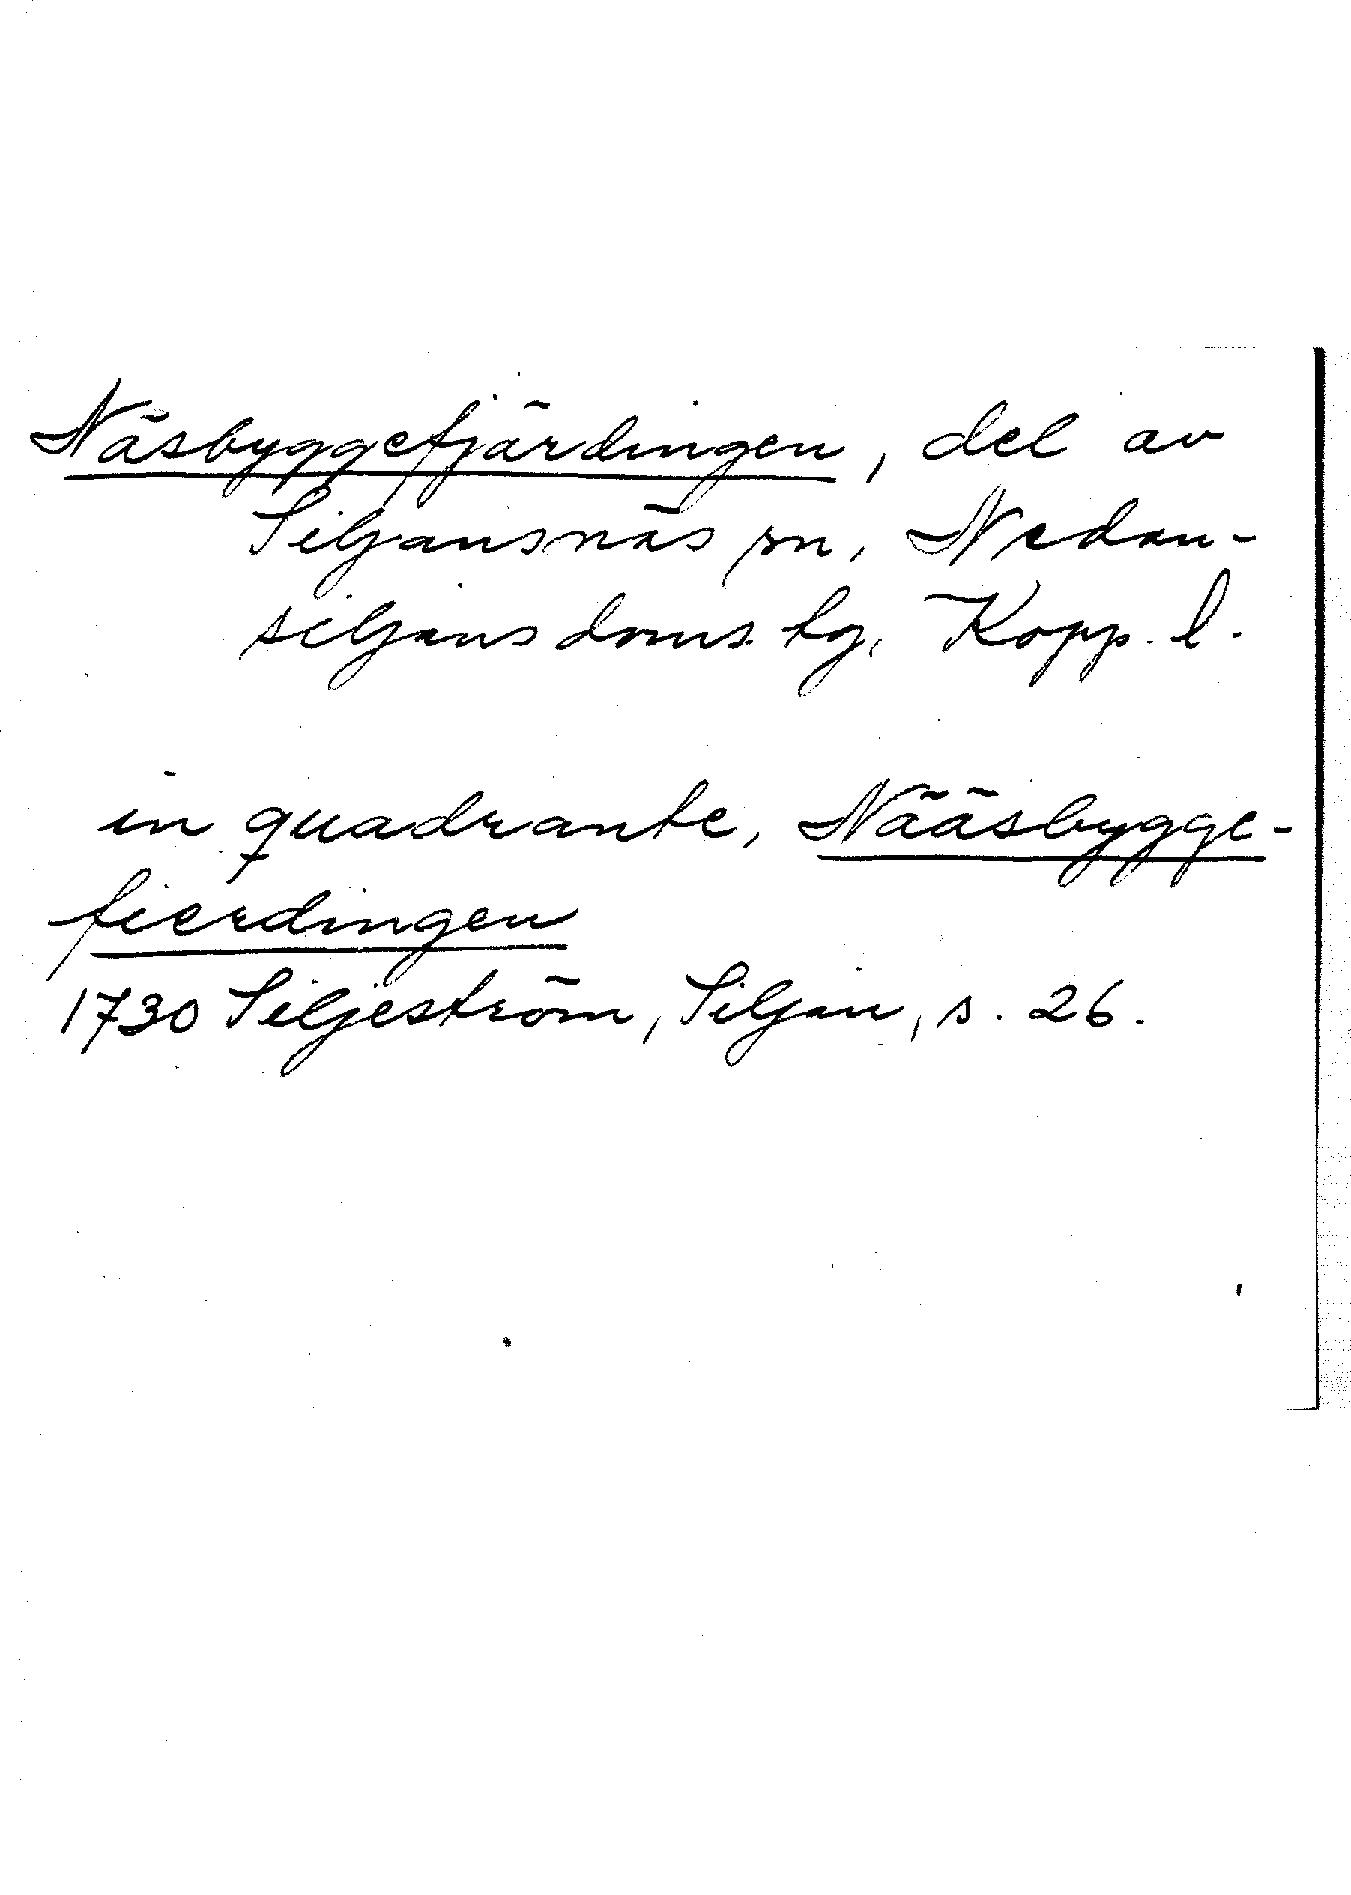 Näsbyggefjärdingen, del av
Siljansnäs sn, Nedan-
siljans doms. tg, Kopp. l.
in quadrante, Nääsbygge-
fierdingen
1730 Siljeström, Siljan, s. 26.